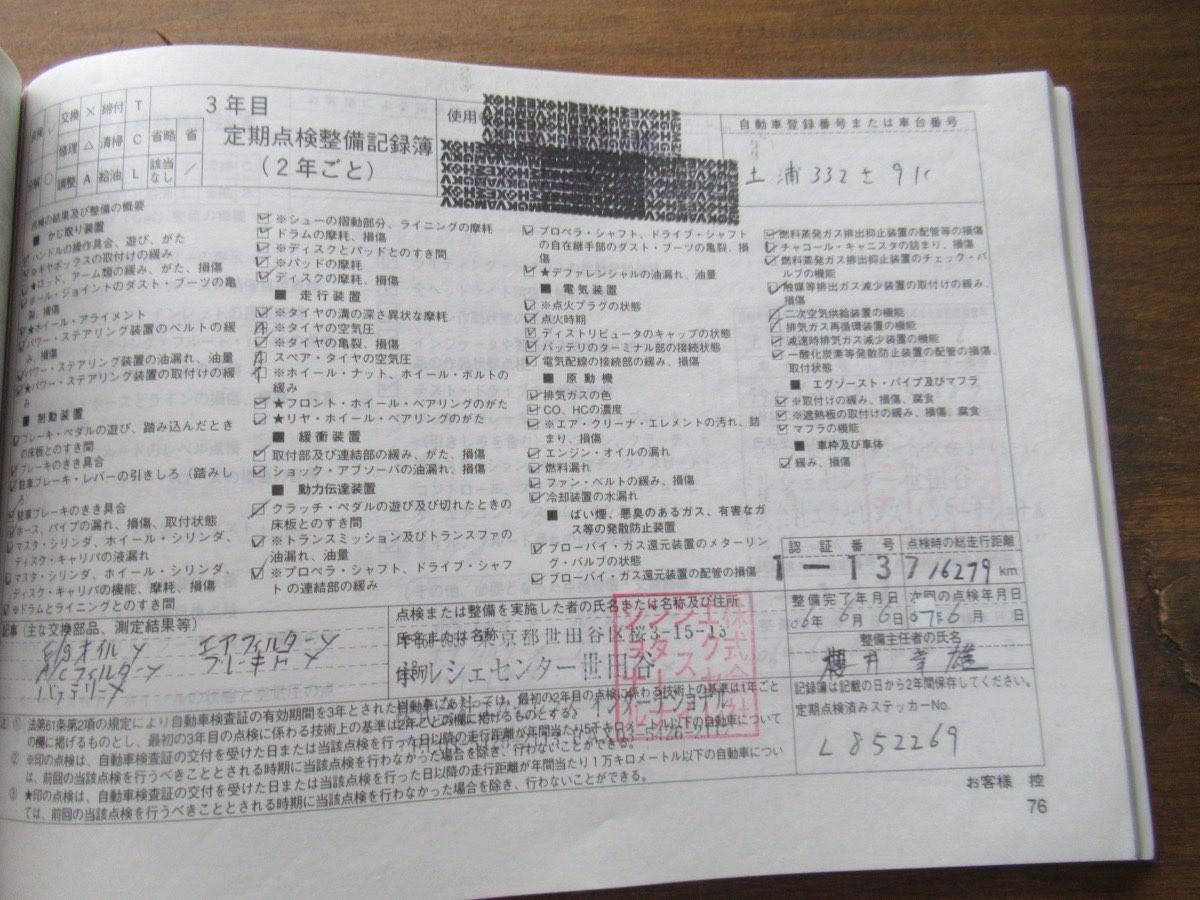 3年目
定期点検整備記録簿
(2年ごと)
交換 × 締付 T
修理 △ 清掃 C 省略 省
調整 A 給油 L 該当なし ／
使用者
自動車登録番号または車台番号
土浦 332 さ 91
点検の結果及び整備の概要
■ かじ取り装置
ハンドルの操作具合、遊び、がた
ギヤボックスの取付けの緩み
★ロッド、アーム類の緩み、がた、損傷
ボール・ジョイントのダスト・ブーツの亀
裂、損傷
★ホイール・アライメント
パワー・ステアリング装置のベルトの緩
み、損傷
パワー・ステアリング装置の油漏れ、油量
★パワー・ステアリング装置の取付けの緩
み
■ 制動装置
ブレーキ・ペダルの遊び、踏み込んだとき
の床板とのすき間
ブレーキのきき具合
駐車ブレーキ・レバーの引きしろ(踏みし
ろ)
駐車ブレーキのきき具合
ホース、パイプの漏れ、損傷、取付状態
マスタ・シリンダ、ホイール・シリンダ、
ディスク・キャリパの液漏れ
マスタ・シリンダ、ホイール・シリンダ、
ディスク・キャリパの機能、摩耗、損傷
※ドラムとライニングとのすき間
※シューの摺動部分、ライニングの摩耗
ドラムの摩耗、損傷
※ディスクとパッドとのすき間
※パッドの摩耗
ディスクの摩耗、損傷
■ 走行装置
※タイヤの溝の深さ異状な摩耗
※タイヤの空気圧
※タイヤの亀裂、損傷
スペア・タイヤの空気圧
※ホイール・ナット、ホイール・ボルトの
緩み
★フロント・ホイール・ベアリングのがた
★リヤ・ホイール・ベアリングのがた
■ 緩衝装置
取付部及び連結部の緩み、がた、損傷
ショック・アブソーバの油漏れ、損傷
■ 動力伝達装置
クラッチ・ペダルの遊び及び切れたときの
床板とのすき間
※トランスミッション及びトランスファの
油漏れ、油量
※プロペラ・シャフト、ドライブ・シャフ
トの連結部の緩み
プロペラ・シャフト、ドライブ・シャフト
の自在継手部のダスト・ブーツの亀裂、損
傷
★デファレンシャルの油漏れ、油量
■ 電気装置
※点火プラグの状態
点火時期
ディストリビュータのキャップの状態
バッテリのターミナル部の接続状態
電気配線の接続部の緩み、損傷
■ 原動機
排気ガスの色
CO、HCの濃度
※エア・クリーナ・エレメントの汚れ、詰
まり、損傷
エンジン・オイルの漏れ
燃料漏れ
ファン・ベルトの緩み、損傷
冷却装置の水漏れ
■ ばい煙、悪臭のあるガス、有害なガ
ス等の発散防止装置
ブローバイ・ガス還元装置のメターリン
グ・バルブの状態
ブローバイ・ガス還元装置の配管の損傷
燃料蒸発ガス排出抑止装置の配管等の損傷
チャコール・キャニスタの詰まり、損傷
燃料蒸発ガス排出抑止装置のチェック・バ
ルブの機能
触媒等排出ガス減少装置の取付けの緩み、
損傷
二次空気供給装置の機能
排気ガス再循環装置の機能
減速時排気ガス減少装置の機能
一酸化炭素等発散防止装置の配管の損傷、
取付状態
■ エグゾースト・パイプ及びマフラ
※取付けの緩み、損傷、腐食
※遮熱板の取付けの緩み、損傷、腐食
マフラの機能
■ 車枠及び車体
緩み、損傷
認証番号 点検時の総走行距離
1-137 16279 km
整備完了年月日 次回の点検年月日
06年 6月 6日 07年 6月 日
整備主任者の氏名
櫻井 幸雄
記録簿は記載の日から2年間保存してください。
定期点検済みステッカーNo.
L852269
記事 (主な交換部品、測定結果等)
E/gオイル× エアフィルター×
A/Cフィルター× ブレーキF×
バッテリー×
点検または整備を実施した者の氏名または名称及び住所
氏名または名称
東京都世田谷区桜3-15-15
住所
ポルシェセンター世田谷
注 ① 法第61条第2項の規定により自動車検査証の有効期間を3年とされた自動車にあっては、最初の2年目の点検に係わる技術上の基準は1年ごと
の欄に掲げるものとし、最初の3年目の点検に係わる技術上の基準は2年ごとの欄に掲げるものとする。
② ※印の点検は、自動車検査証の交付を受けた日または当該点検を行った日以降の走行距離が年間当たり5千キロメートル以下の自動車について
は、前回の当該点検を行うべきこととされる時期に当該点検を行わなかった場合を除き、行わないことができる。
③ ★印の点検は、自動車検査証の交付を受けた日または当該点検を行った日以降の走行距離が年間当たり1万キロメートル以下の自動車につい
ては、前回の当該点検を行うべきこととされる時期に当該点検を行わなかった場合を除き、行わないことができる。
お客様 控
76